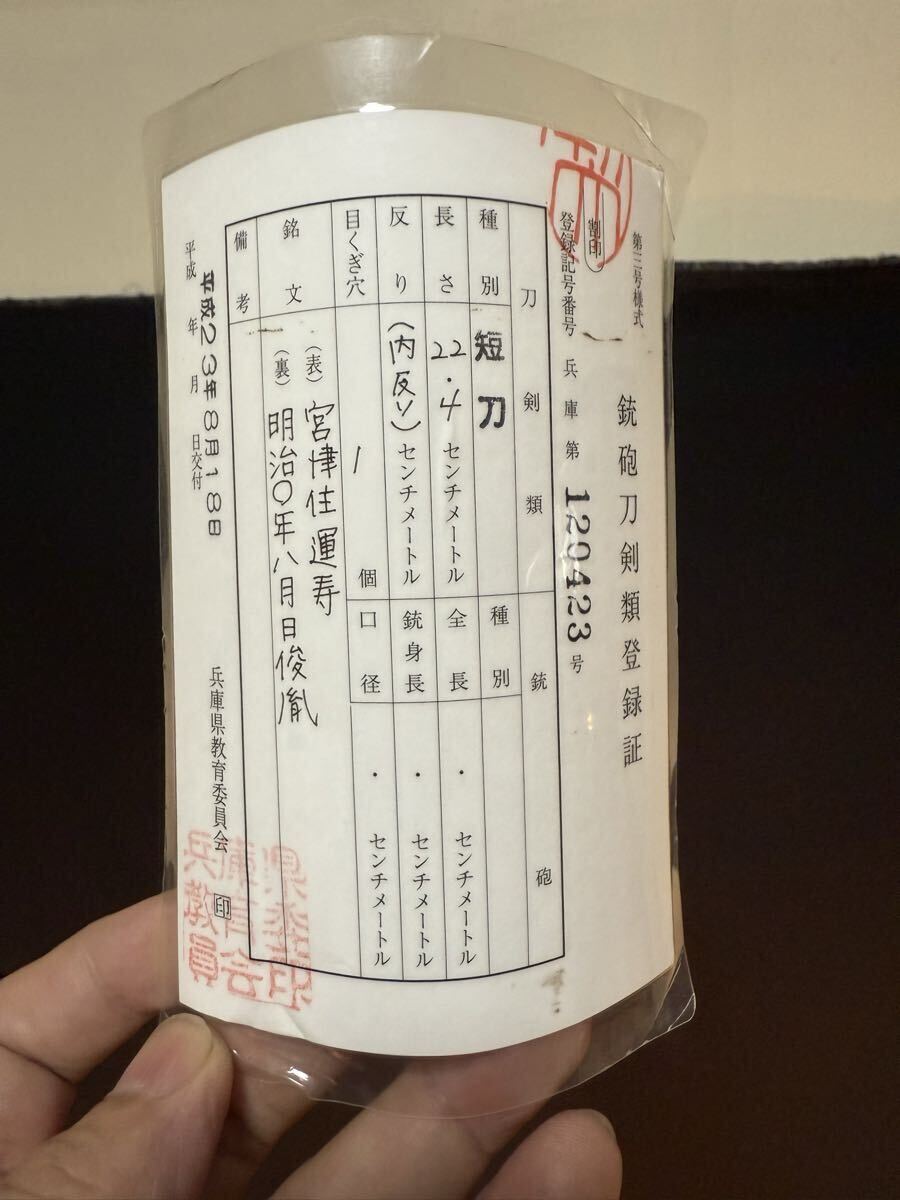 第三号様式
銃砲刀剣類登録証
割印
登録記号番号 兵庫第 120423 号
刀剣類
種別 短刀
長さ 22.4 センチメートル
反り (内反り) センチメートル
目くぎ穴 1 個
銃砲
種別
全長 . センチメートル
銃身長 . センチメートル
口径 . センチメートル
銘文
(表) 宮津住運寿
(裏) 明治〇年八月日俊胤
備考
平成 年 月 日交付
平成23年8月18日
兵庫県教育委員会 印
兵庫県教育委員会